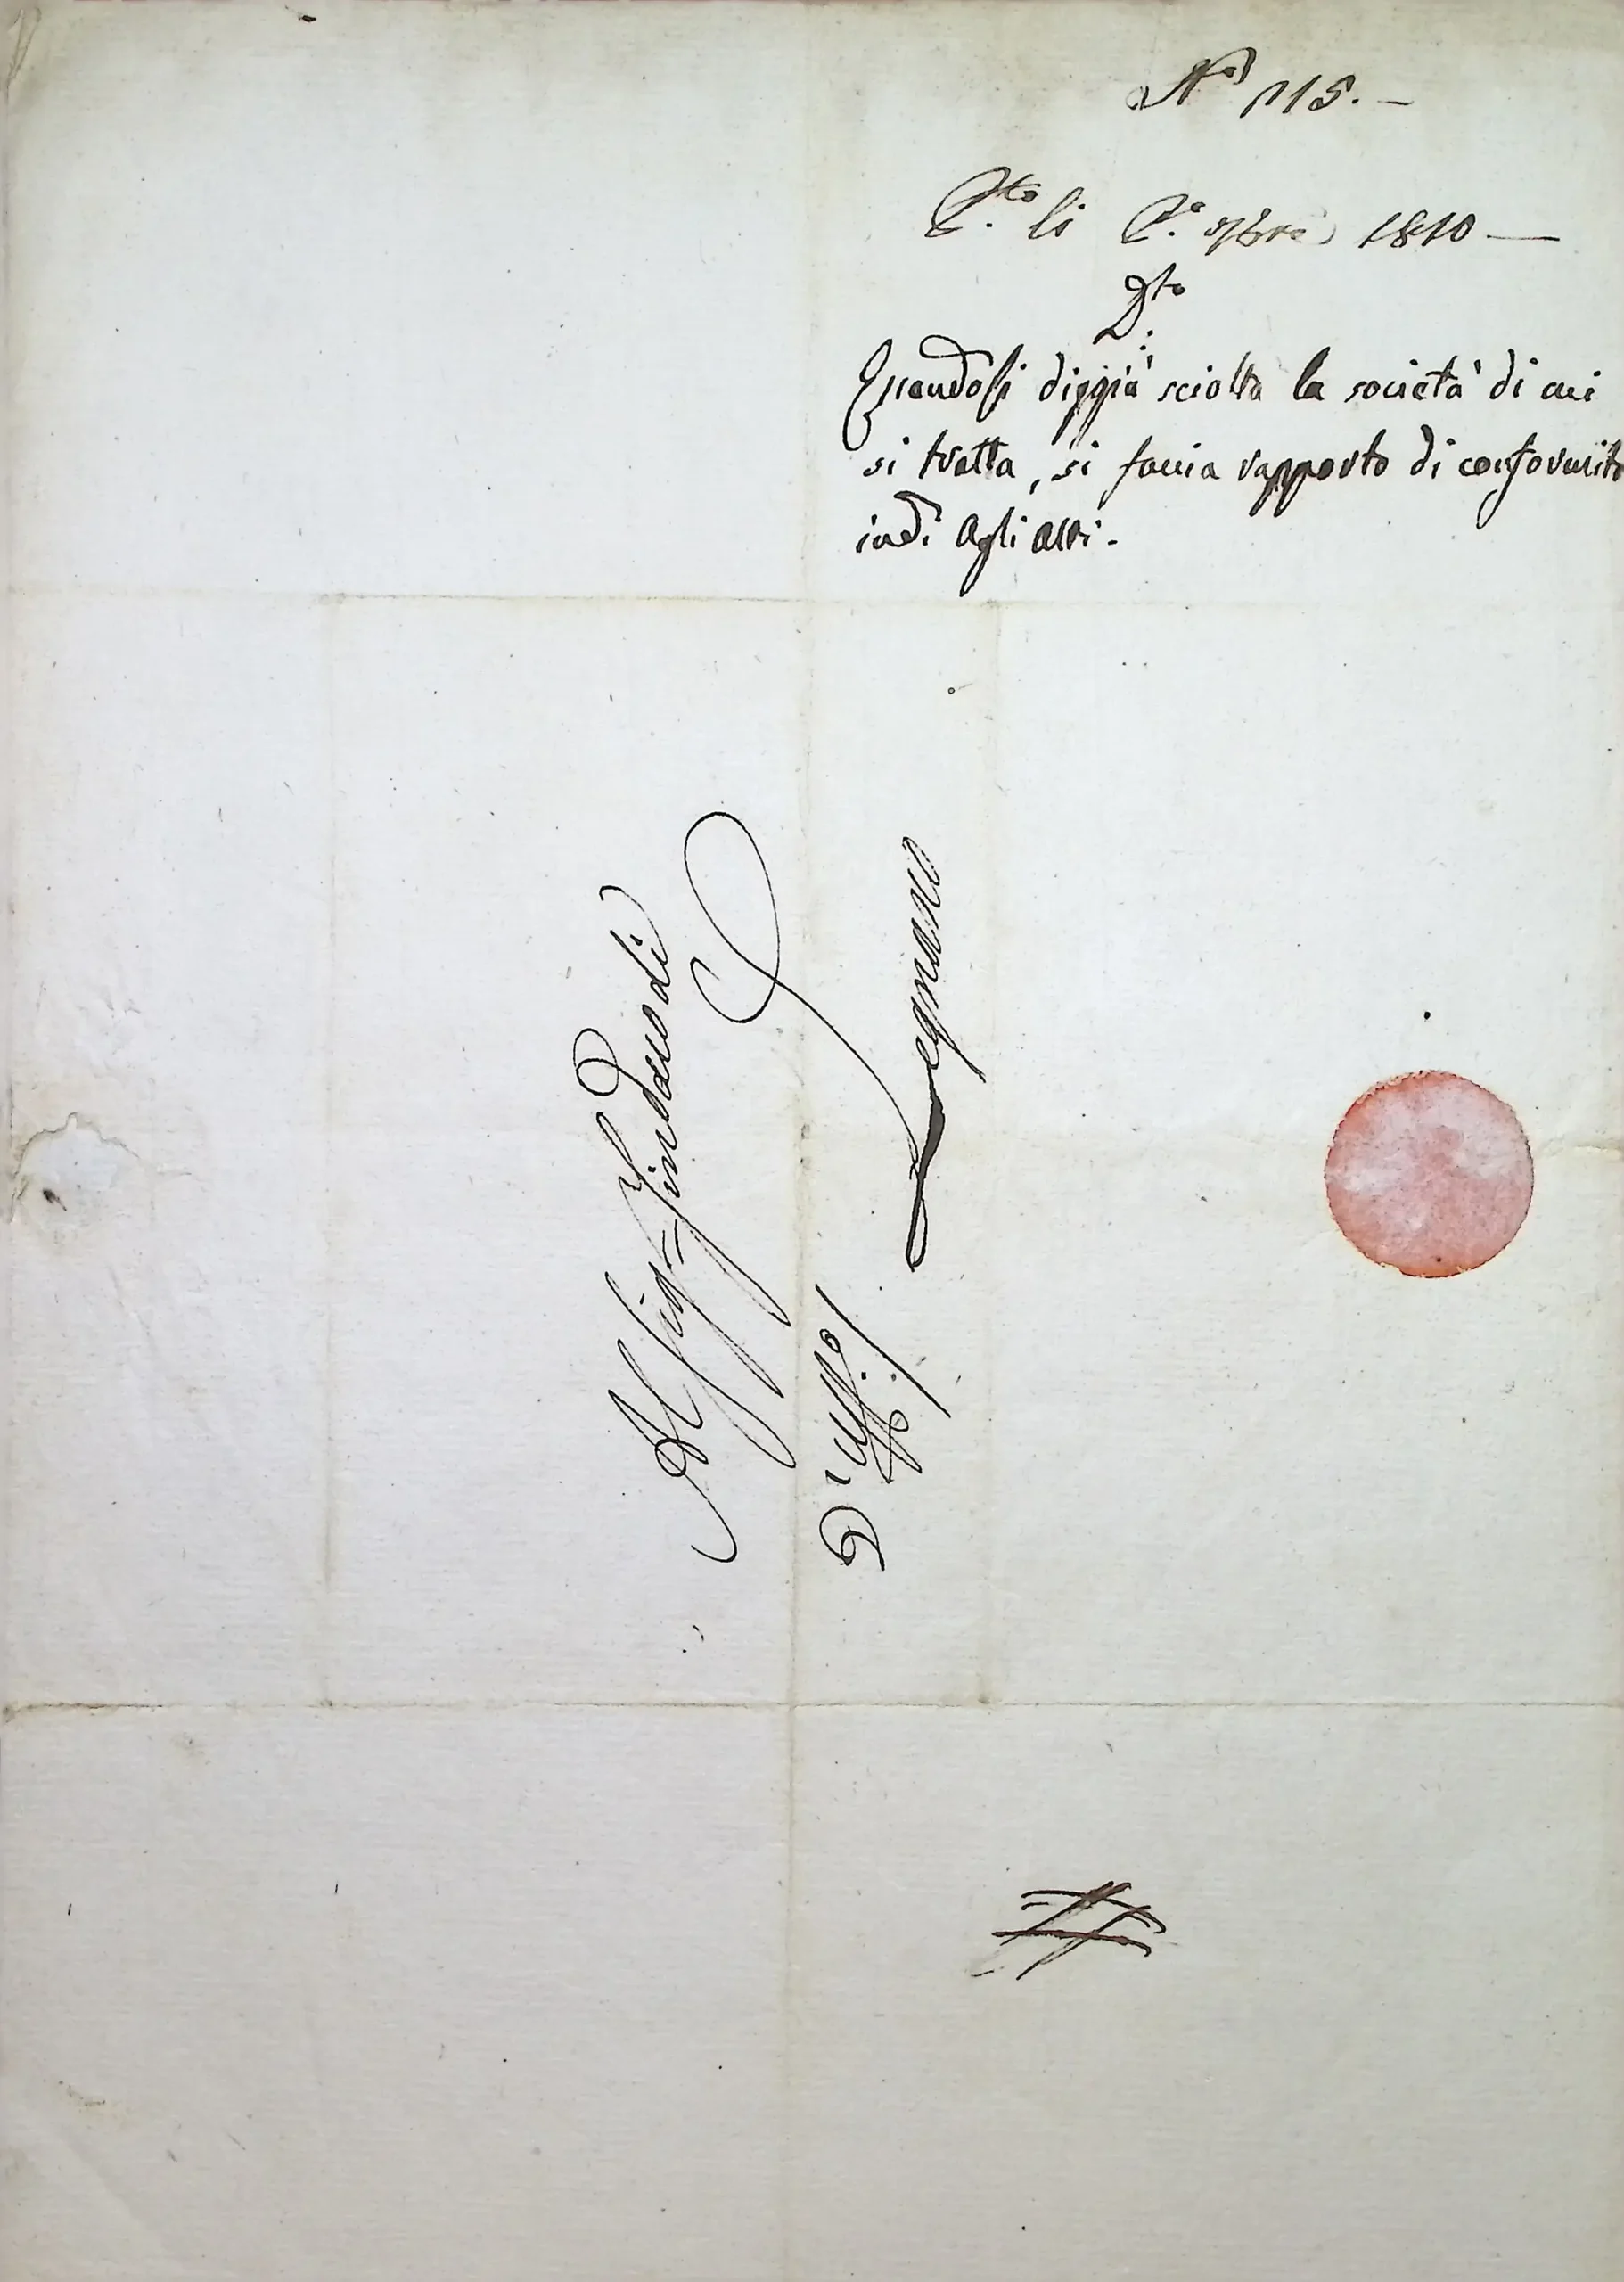 N.º 115. —
P.to li P.º 7bre 1810 —
D.to
Essendosi diggià sciolta la società di cui
si tratta, si faccia rapporto di conformità
indi agli atti.
Al Sig.r Sindaco di
D'uff.º / Legnano